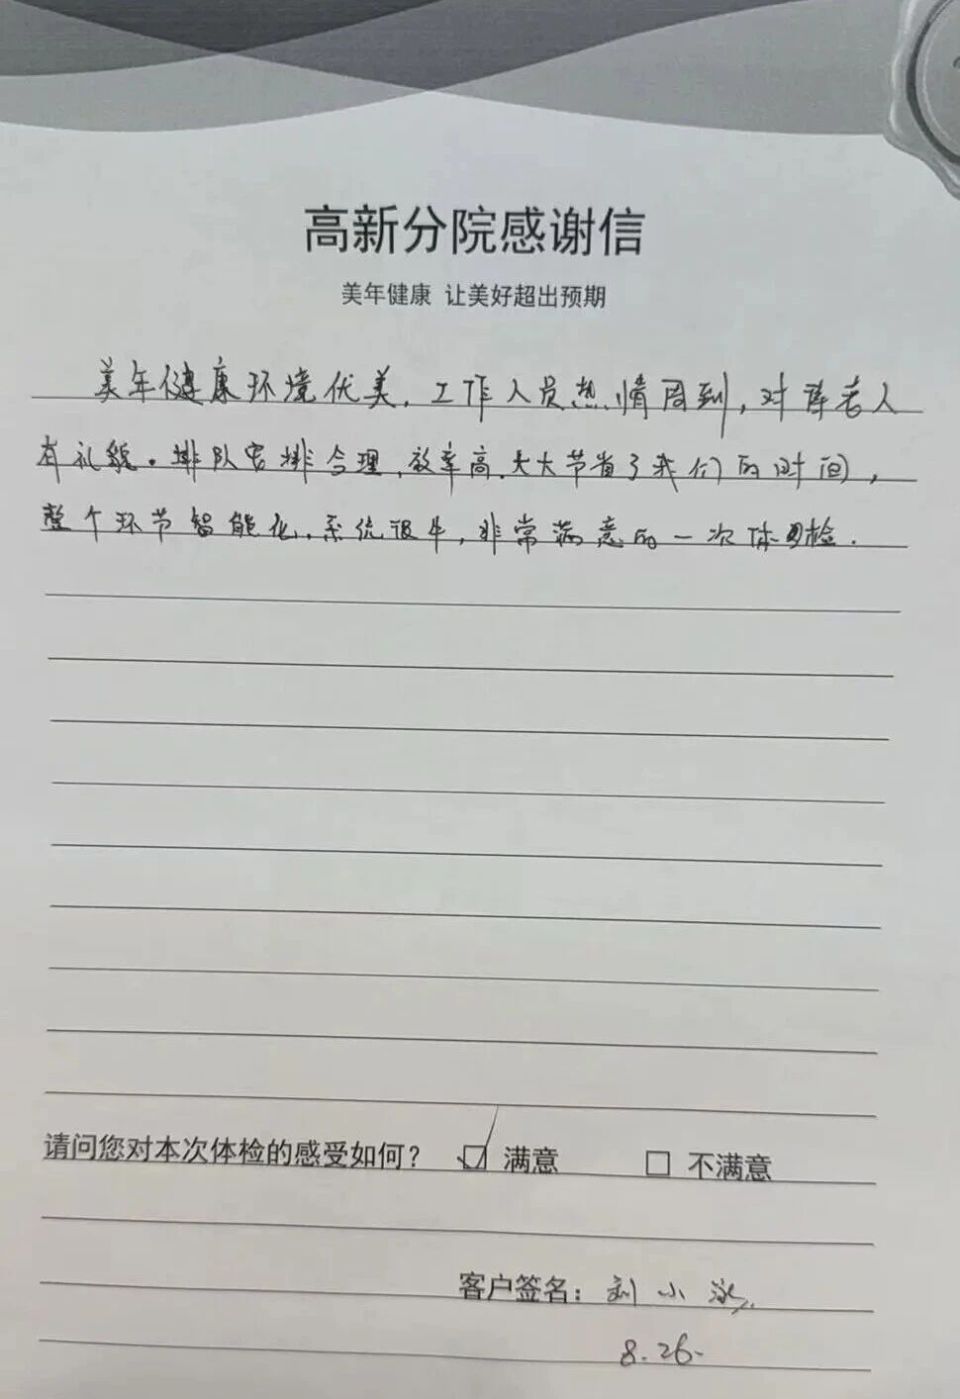 高新分院感谢信
美年健康 让美好超出预期
美年健康环境优美,工作人员热情周到,对待老人
有礼貌。排队安排合理,效率高,大大节省了我们的时间,
整个环节智能化,系统很牛,非常满意的一次体检.
请问您对本次体检的感受如何? ☑ 满意 □ 不满意
客户签名: 刘小
8.26.